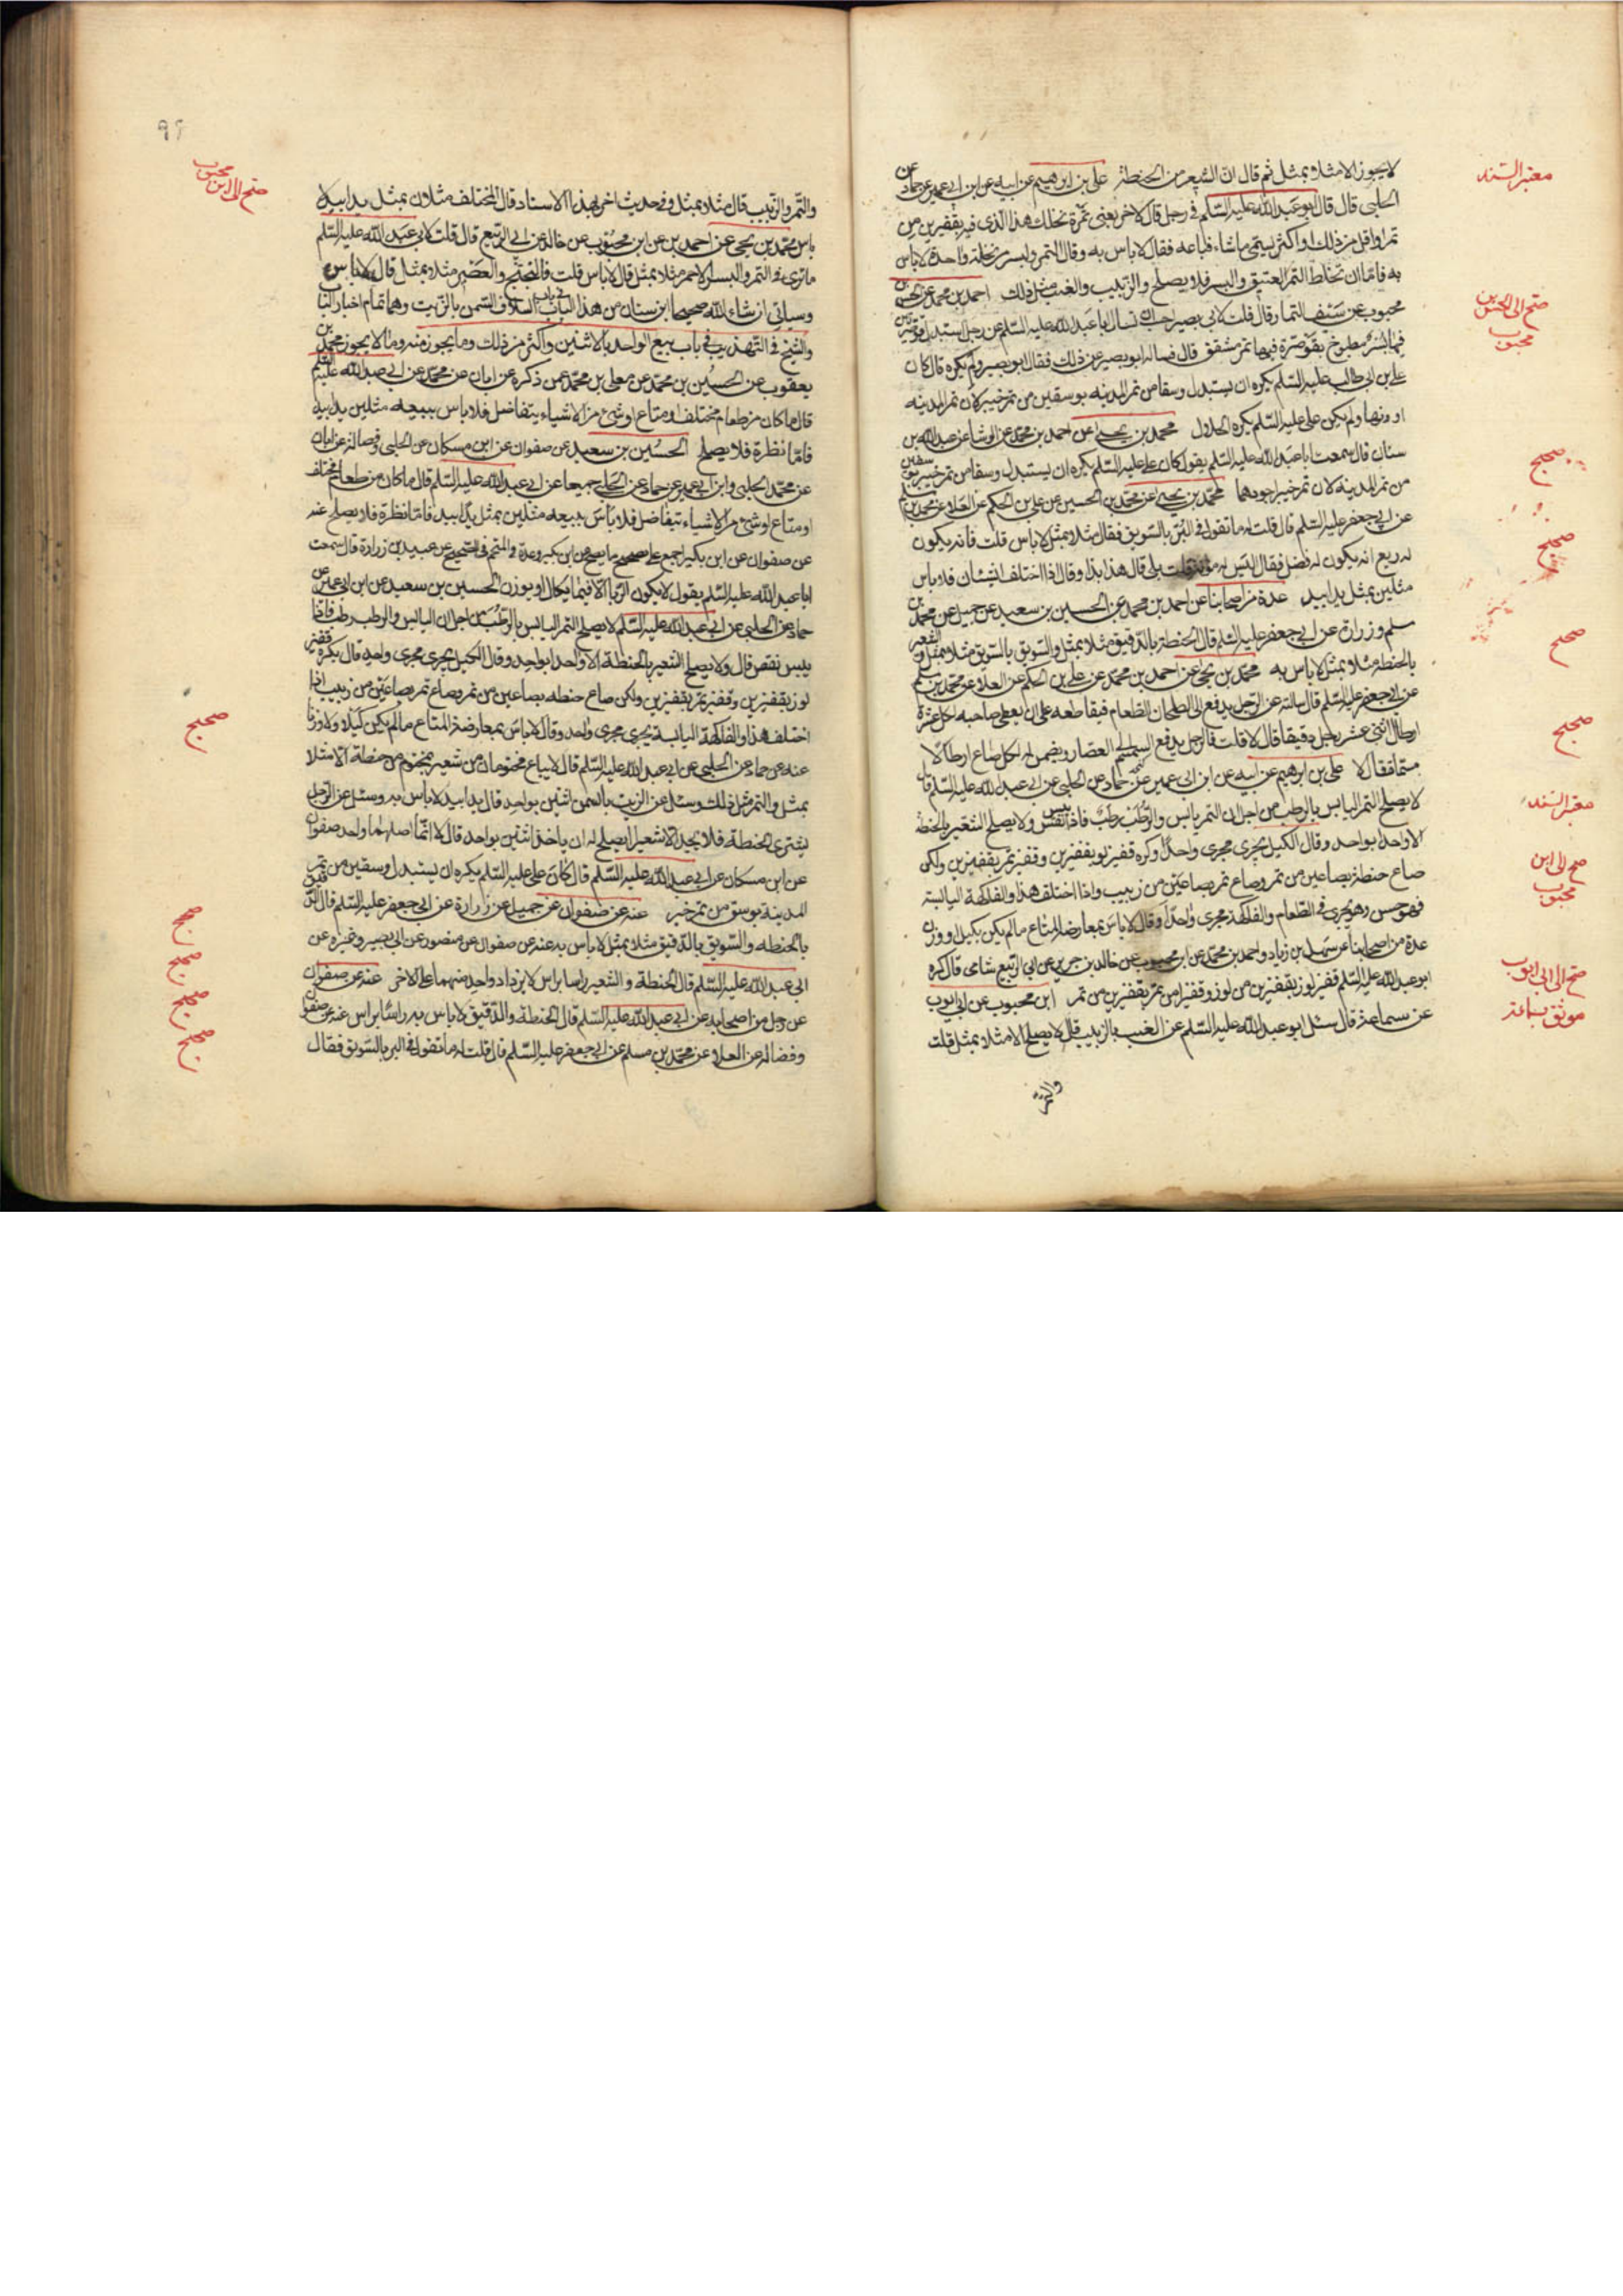 لا يجوز الا مثلا بمثل ثم قال ان الشعير من الحنطة علي بن ابرهيم عن ابيه عن ابن ابي عمير عن حماد عن
الحلبي قال قال ابو عبد الله عليه السلم في رجل قال لاخر بعني ثمرة نخلك هذا الذي فيه بقفيزين من
تمر او اقل من ذلك او اكثر يسمي ما شاء فباعه فقال لا باس به وقال التمر والبسر من نخلة واحدة لا باس
به فاما ان تخلط التمر العتيق والبسر فلا يصلح والزبيب والعنب مثل ذلك احمد بن محمد عن الحسن بن
محبوب عن سيف التمار قال قلت لابي بصير احب ان تسال ابا عبد الله عليه السلم عن رجل استبدل قوصرتين
فيهما بسر مطبوخ بقوصرة فيها تمر مشقق قال فساله ابو بصير عن ذلك فقال ابو بصير ولم يكره قال كان
علي بن ابي طالب عليه السلم يكره ان يستبدل وسقا من تمر المدينه بوسقين من تمر خيبر لان تمر المدينه
ادونها ولم يكن علي عليه السلم يكره الحلال محمد بن يحيى عن احمد بن محمد عن الوشا عن عبد الله بن
سنان قال سمعت ابا عبد الله عليه السلم يقول كان علي عليه السلم يكره ان يستبدل وسقا من تمر خيبر بوسقين
من تمر المدينه لان تمر خيبر اجودهما محمد بن يحيى عن محمد بن الحسين عن علي بن الحكم عن العلا عن محمد بن مسلم
عن ابي جعفر عليه السلم قال قلت له ما تقول في البر بالسويق فقال مثلا بمثل لا باس قلت فانه يكون
له ريع انه يكون له فضل فقال اليس له مؤنة قلت بلى قال هذا بذا وقال اذا اختلف الشيئان فلا باس
مثلين بمثل يدا بيد عدة من اصحابنا عن احمد بن محمد عن الحسين بن سعيد عن جميل عن محمد بن
مسلم وزرارة عن ابي جعفر عليه السلم قال الحنطة بالدقيق مثلا بمثل والسويق بالسويق مثلا بمثل والشعير
بالحنطه مثلا بمثل لا باس به محمد بن يحيى عن احمد بن محمد عن علي بن الحكم عن العلا عن محمد بن مسلم
عن ابي جعفر عليه السلم قال سالته عن الرجل يدفع الى الطحان الطعام فيقاطعه على ان يعطي صاحبه لكل عشرة
ارطال اثنى عشر رطل دقيقا قال لا قلت فالرجل يدفع السمسم الى العصار ويضمن له لكل صاع ارطالا
مسماة فقال لا علي بن ابرهيم عن ابيه عن ابن ابي عمير عن حماد عن الحلبي عن ابي عبد الله عليه السلم قال
لا يصلح التمر اليابس بالرطب من اجل ان التمر يابس والرطب رطب فاذا يبس نقص ولا يصلح الشعير بالحنطه
الا واحدا بواحد وقال الكيل يجري مجرى واحدا وكره قفيز لوز بقفيزين وقفيز تمر بقفيزين ولكن
صاع حنطة بصاعين من تمر وصاع تمر بصاعين من زبيب واذا اختلف هذا والفاكهة اليابسة
فهو حسن وهو يجري في الطعام والفاكهة مجرى واحدا وقال لا باس بمعاوضة المتاع ما لم يكن بكيل او وزن
عدة من اصحابنا عن سهل بن زياد واحمد بن محمد عن ابن محبوب عن خالد بن جرير عن ابي الربيع شامى قال كره
ابو عبد الله عليه السلم قفيز لوز بقفيزين من لوز وقفيزا من تمر بقفيزين من تمر ابن محبوب عن ابي ايوب
عن سماعة قال سئل ابو عبد الله عليه السلم عن العنب بالزبيب قال لا يصلح الا مثلا بمثل قلت
والتمر
معتبر السند
صح الى الحسن بن محبوب
صحيح
صحيح
صحيح
صحيح
معتبر السند
صح الى ابن محبوب
صح الى ابى ايوب
موثق بسماعة
٩٢
والتمر والزبيب قال مثلا بمثل وفي حديث اخر بهذا الاسناد قال المختلف مثلان بمثل يدا بيد لا
باس محمد بن يحيى عن احمد بن عن ابن محبوب عن خالد عن ابي الربيع قال قلت لابي عبد الله عليه السلم
ما ترى في التمر والبسر الاحمر مثلا بمثل قال لا باس قلت فالبختج والعصير مثلا بمثل قال لا باس
وسياتي ان شاء الله صحيحا ابن سنان من هذا الباب في باب اسلاف السمن بالزيت وهما تمام اخبار الباب
والشيخ في التهذيب في باب بيع الواحد بالاثنين واكثر من ذلك وما يجوز منه وما لا يجوز محمد بن
يعقوب عن الحسين بن محمد عن معلى بن محمد عمن ذكره عن ابان عن محمد عن ابي عبد الله عليه السلم
قال ما كان من طعام مختلف او متاع او شئ من الاشياء يتفاضل فلا باس ببيعه مثلين يدا بيد
فاما نظرة فلا يصلح الحسين بن سعيد عن صفوان عن ابن مسكان عن الحلبى وفضالة عن ابان
عن محمد الحلبى وابن ابي عمير عن حماد عن الحلبي جميعا عن ابي عبد الله عليه السلم قال ما كان من طعام مختلف
او متاع او شئ من الاشياء يتفاضل فلا باس ببيعه مثلين بمثل يدا بيد فاما نظرة فلا يصلح عنه
عن صفوان عن ابن بكير عن عبيد بن زرارة قال سمعت
ابا عبد الله عليه السلم يقول لا يكون الربا الا فيما يكال او يوزن الحسين بن سعيد عن ابن ابي عمير عن
حماد عن الحلبي عن ابي عبد الله عليه السلم لا يصلح التمر اليابس بالرطب من اجل ان اليابس والرطب رطب فاذا
يبس نقص قال ولا يصلح الشعير بالحنطة الا واحدا بواحد وقال الكيل يجرى مجرى واحد قال يكره قفيز
لوز بقفيزين وقفيز تمر بقفيزين ولكن صاع حنطه بصاعين من تمر وصاع تمر بصاعين من زبيب اذا
اختلف هذا والفاكهة اليابسة يجرى مجرى واحد وقال لا باس بمعاوضة المتاع ما لم يكن كيلا ولا وزنا
عنه عن حماد عن الحلبي عن ابي عبد الله عليه السلم قال لا يباع مختومان من شعير بمختوم من حنطة الا مثلا
بمثل والتمر مثل ذلك وسئل عن الزيت بالسمن اثنين بواحد قال يدا بيد لا باس به وسئل عن الرجل
يشترى الحنطة فلا يجد الا شعيرا ايصلح له ان ياخذ اثنين بواحد قال لا انما اصلهما واحد صفوان
عن ابن مسكان عن ابي عبد الله عليه السلم قال كان علي عليه السلم يكره ان يستبدل وسقين من تمر
المدينة بوسق من تمر خيبر عنه عن صفوان عن جميل عن زرارة عن ابي جعفر عليه السلم قال الدقيق
بالحنطه والسويق بالدقيق مثلا بمثل لا باس به عنه عن صفوان عن منصور عن ابي بصير وغيره عن
ابي عبد الله عليه السلم قال الحنطة والشعير راسا براس لا يزداد واحد منهما على الاخر عنه عن صفوان
عن رجل من اصحابه عن ابي عبد الله عليه السلم قال الحنطة والدقيق لا باس به راسا براس عنه عن صفوان
وفضاله عن العلا عن محمد بن مسلم عن ابي جعفر عليه السلم قال قلت له ما تقول في البر بالسويق فقال
صح الى ابن محبوب
صحيح
صحيح
صحيح
صحيح
صحيح